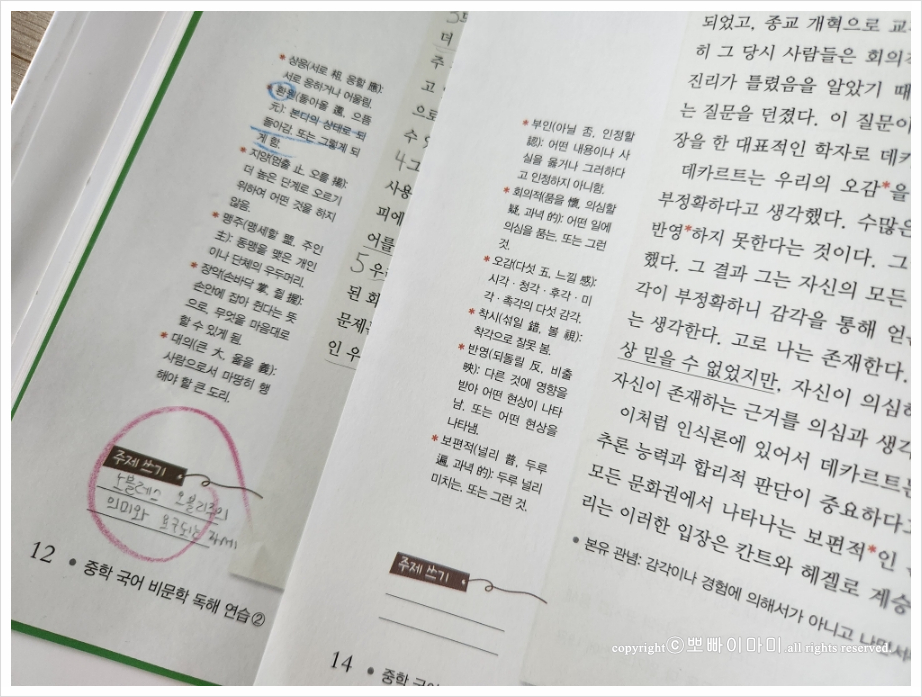 * 상응(서로 相, 응할 應):
서로 응하거나 어울림.
* 환원(돌아올 還, 으뜸
元): 본디의 상태로 되
돌아감. 또는 그렇게 되
게 함.
* 지양(멈출 止, 오를 揚):
더 높은 단계로 오르기
위하여 어떤 것을 하지
않음.
* 맹주(맹세할 盟, 주인
主): 동맹을 맺은 개인
이나 단체의 우두머리.
* 장악(손바닥 掌, 쥘 握):
손안에 잡아 쥔다는 뜻
으로, 무엇을 마음대로
할 수 있게 됨.
* 대의(큰 大, 옳을 義):
사람으로서 마땅히 행
해야 할 큰 도리.
주제 쓰기
노블레스 오블리주의
의미와 요구되는 과제
12 • 중학 국어 비문학 독해 연습②
더
주
고
으로
수
4그
사용
피에
어를
5 우
된 회
문제
인 우
* 부인(아닐 否, 인정할
認): 어떤 내용이나 사
실을 옳거나 그러하다
고 인정하지 아니함.
* 회의적(품을 懷, 의심할
疑, 과녁 的): 어떤 일에
의심을 품는. 또는 그런
것.
* 오감(다섯 五, 느낄 感):
시각·청각·후각·미
각·촉각의 다섯 감각.
* 착시(섞일 錯, 볼 視):
착각으로 잘못 봄.
* 반영(되돌릴 反, 비출
映): 다른 것에 영향을
받아 어떤 현상이 나타
남. 또는 어떤 현상을
나타냄.
* 보편적(널리 普, 두루
遍, 과녁 的): 두루 널리
미치는. 또는 그런 것.
주제 쓰기
14 • 중학 국어
되었고, 종교 개혁으로 교
히 그 당시 사람들은 회의적
진리가 틀렸음을 알았기 때
는 질문을 던졌다. 이 질문이
장을 한 대표적인 학자로 데카
데카르트는 우리의 오감*을
부정확하다고 생각했다. 수많은
반영*하지 못한다는 것이다. 그
했다. 그 결과 그는 자신의 모든
각이 부정확하니 감각을 통해 얻은
는 생각한다. 고로 나는 존재한다.
상 믿을 수 없었지만, 자신이 의심하
자신이 존재하는 근거를 의심과 생각
이처럼 인식론에 있어서 데카르트는
추론 능력과 합리적 판단이 중요하다고
모든 문화권에서 나타나는 보편적*인
리는 이러한 입장은 칸트와 헤겔로 계승
• 본유 관념: 감각이나 경험에 의해서가 아니고 나면서
copyright ⓒ 뽀빠이마미 all rights reserved.